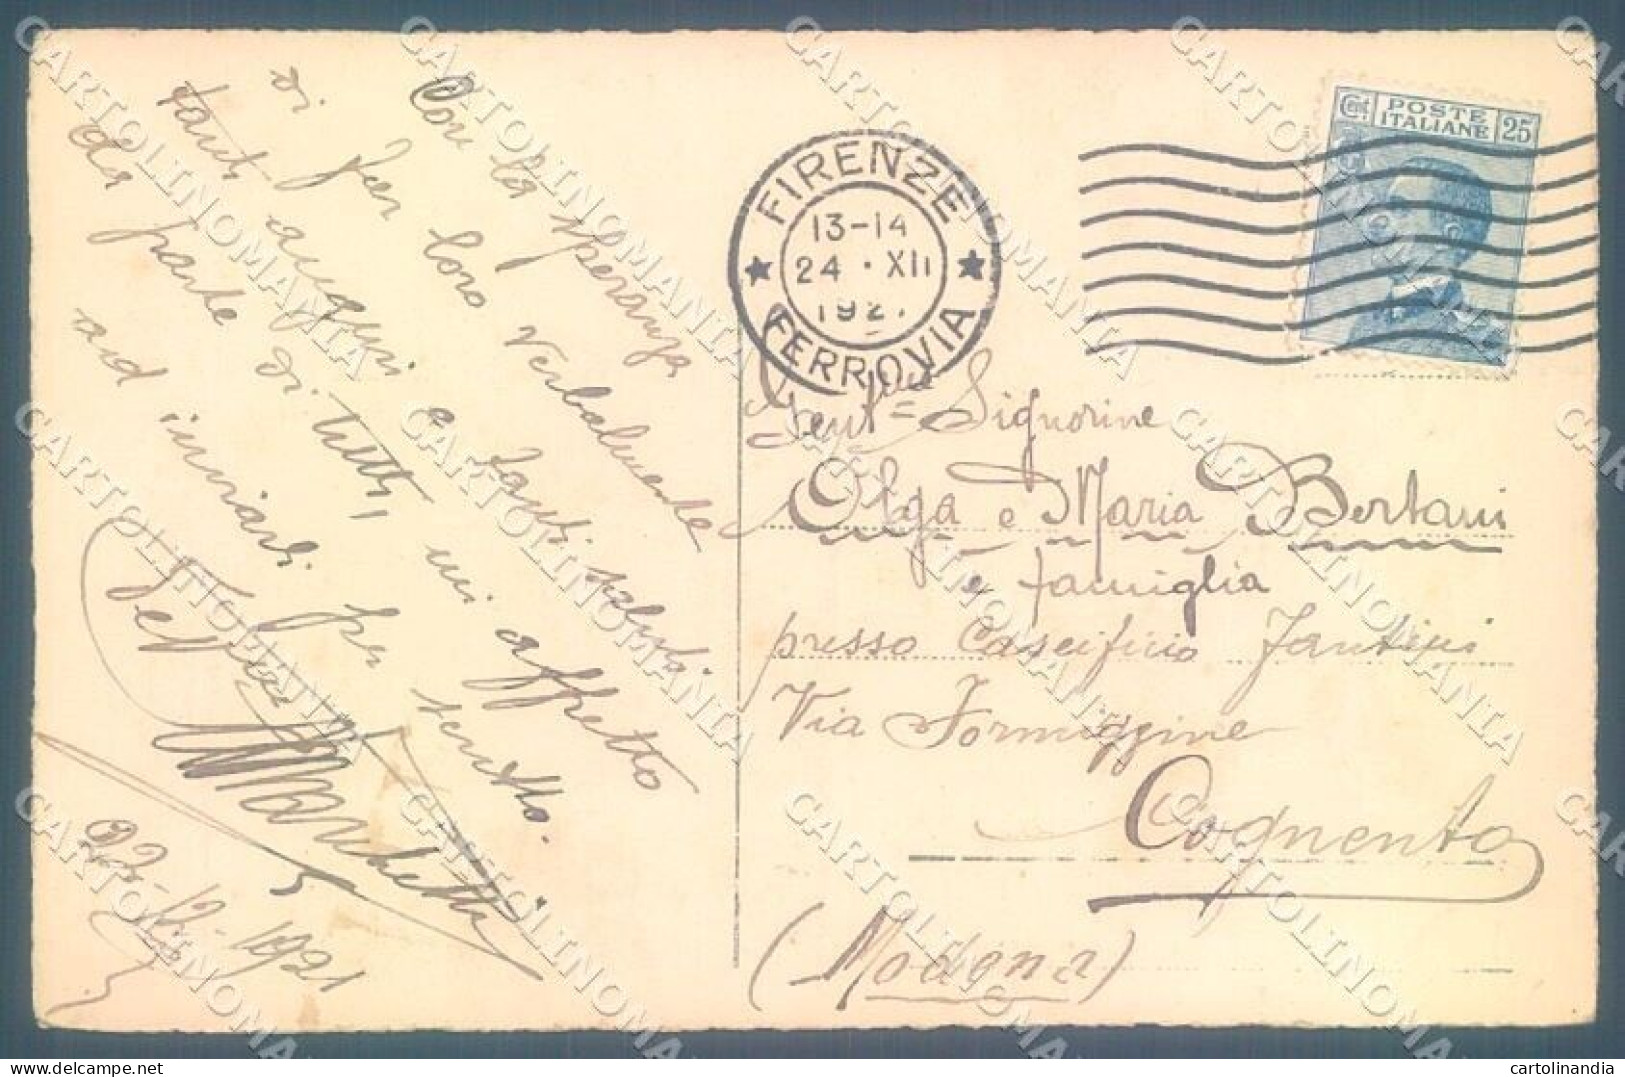 Con la speranza
di far loro verbalmente
tanti auguri e tanti saluti
da parte di tutti, mi affretto
ad inviarli per scritto.
Marchetti
23-12-1921
FIRENZE
13-14
24 · XII
192
FERROVIA
Cent. POSTE ITALIANE 25
Gent. Signorine
Olga e Maria Bertani
e famiglia
presso Caseificio Fantini
Via Formiggine
Cognento
(Modena)
CARTOLINOMANIA
www.delcampe.net
cartolinandia